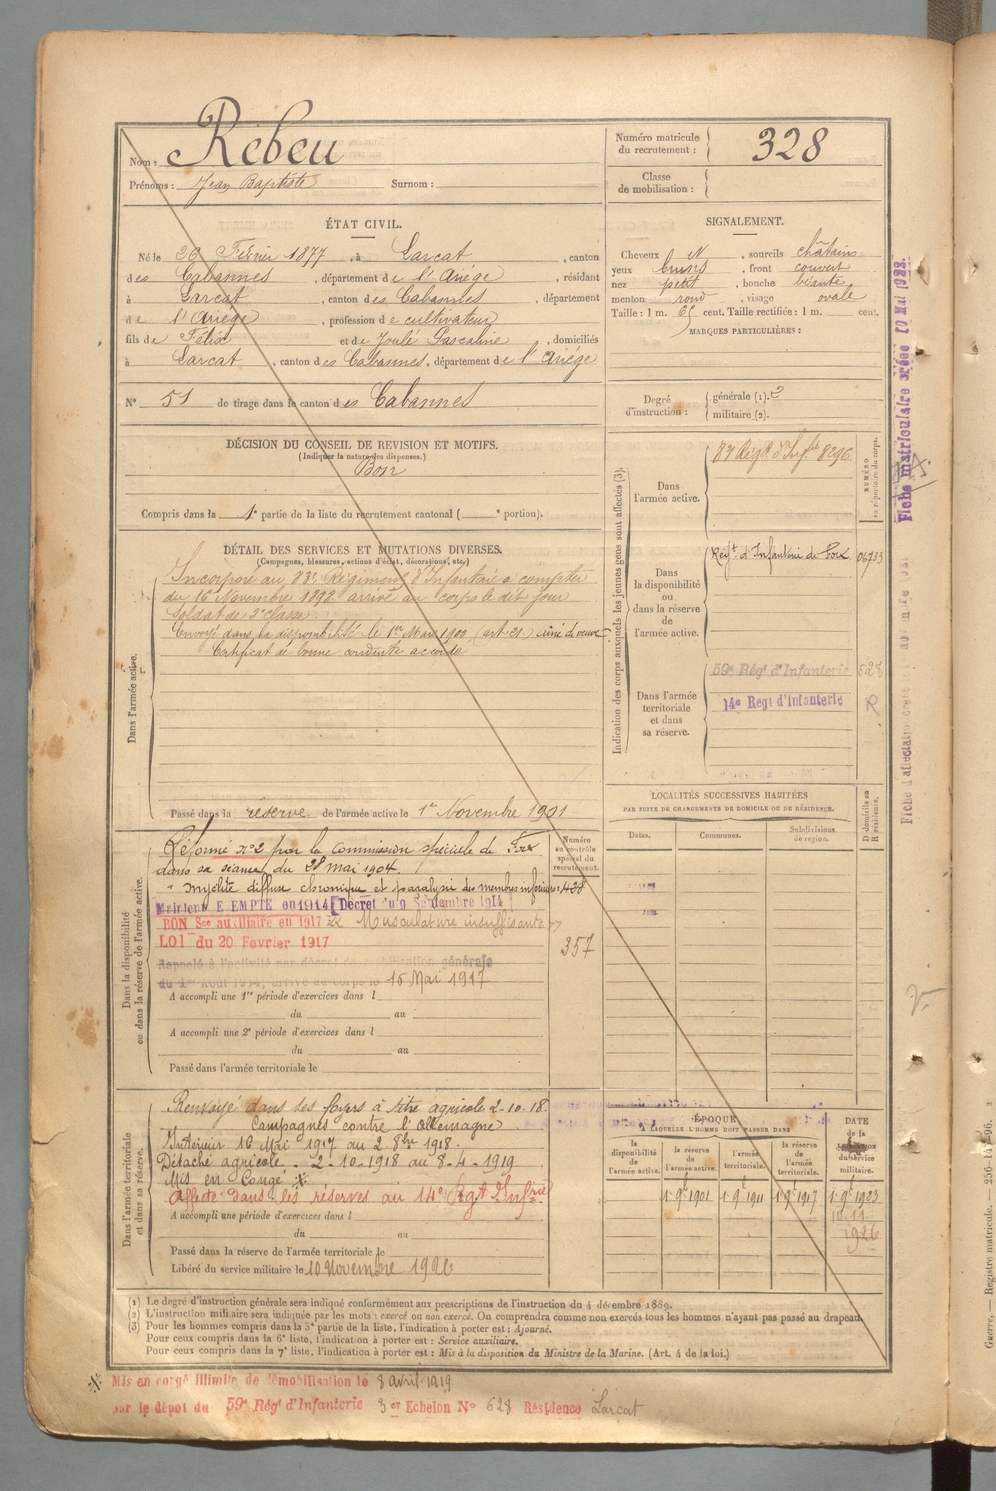 Nom : Rebeu
Prénoms : Jean Baptiste Surnom :
Numéro matricule du recrutement : 328
Classe de mobilisation :
ÉTAT CIVIL.
Né le 26 Février 1877, à Larcat, canton
des Cabannes, département de l'Ariége, résidant
à Larcat, canton des Cabannes, département
de l'Ariége, profession de cultivateur
fils de Félix et de Joulé Pascaline, domiciliés
à Larcat, canton des Cabannes, département de l'Ariége
N° 51 de tirage dans le canton des Cabannes
SIGNALEMENT.
Cheveux N, sourcils châtains
yeux bruns, front couvert
nez petit, bouche béante
menton rond, visage ovale
Taille : 1 m. 65 cent. Taille rectifiée : 1 m. cent.
MARQUES PARTICULIÈRES :
Degré d'instruction : générale (1). 2
militaire (2).
DÉCISION DU CONSEIL DE REVISION ET MOTIFS.
(Indiquer la nature des dispenses.)
Bon
Compris dans la 1e partie de la liste du recrutement cantonal ( e portion).
DÉTAIL DES SERVICES ET MUTATIONS DIVERSES.
(Campagnes, blessures, actions d'éclat, décorations, etc.)
Dans l'armée active.
Incorporé au 83e Régiment d'Infanterie à compter
du 16 Novembre 1898 arrivé au corps le dit jour
Soldat de 2e classe
Envoyé dans la disponibilité le 1er Mars 1900 (art 21) de veuve
Certificat de bonne conduite accordé
Passé dans la réserve de l'armée active le 1er Novembre 1901
Indication des corps auxquels les jeunes gens sont affectés (3).
NUMÉRO au répertoire du corps.
Dans l'armée active.
83 Régt d'Infie 8296
Dans la disponibilité ou dans la réserve de l'armée active.
Régt d'Infanterie de Foix 06733
Dans l'armée territoriale et dans sa réserve.
59e Régt d'Infanterie 628
14e Regt d'Infanterie R
Fiche matriculaire créée 10 Mai 1922
LOCALITÉS SUCCESSIVES HABITÉES
PAR SUITE DE CHANGEMENTS DE DOMICILE OU DE RÉSIDENCE.
Dates. Communes. Subdivisions de region. D domicile ou R résidence.
Dans la disponibilité ou dans la réserve de l'armée active.
Réformé n°2 par la Commission spéciale de Foix
dans sa séance du 28 mai 1904.
" myélite diffuse chronique et paralysie des membres inférieurs
Maintenu EXEMPTE en 1914 [Décret du 9 Septembre 1914]
BON Sce auxiliaire en 1917 Musculature insuffisante
LOI du 20 Février 1917
Rappelé à l'activité par décret de mobilisation générale
du 1er Août 1914, arrivé au corps le 16 Mai 1917
Numéro au contrôle spécial du recrutement.
428
357
A accompli une 1re période d'exercices dans l
du au
A accompli une 2e période d'exercices dans l
du au
Passé dans l'armée territoriale le
Dans l'armée territoriale et dans sa réserve.
Renvoyé dans ses foyers à titre agricole 2-10-18.
Campagnes contre l'Allemagne
Intérieur 16 Mai 1917 au 2 8bre 1918.
Détaché agricole. 2-10-1918 au 8-4-1919
Mis en Congé
Affecté dans les réserves au 14e Rgt Infrie
A accompli une période d'exercices dans l
du au
Passé dans la réserve de l'armée territoriale le
Libéré du service militaire le 10 Novembre 1926
ÉPOQUE
A LAQUELLE L'HOMME DOIT PASSER DANS
la disponibilité de l'armée active. la réserve de l'armée active. l'armée territoriale. la réserve de l'armée territoriale. DATE de la du service militaire.
1 9e 1901 1 9e 1911 1 9e 1917 1 9e 1923
10.11
1926
(1) Le degré d'instruction générale sera indiqué conformément aux prescriptions de l'instruction du 4 décembre 1889.
(2) L'instruction militaire sera indiquée par les mots : exercé ou non exercé. On comprendra comme non exercés tous les hommes n'ayant pas passé au drapeau.
(3) Pour les hommes compris dans la 5e partie de la liste, l'indication à porter est : Ajourné.
Pour ceux compris dans la 6e liste, l'indication à porter est : Service auxiliaire.
Pour ceux compris dans la 7e liste, l'indication à porter est : Mis à la disposition du Ministre de la Marine. (Art. 4 de la loi.)
Mis en congé illimité de démobilisation le 8 avril 1919
par le dépôt du 59e Régt d'Infanterie 3er Echelon N° 628 Résidence Larcat
Guerre. — Registre matricule.